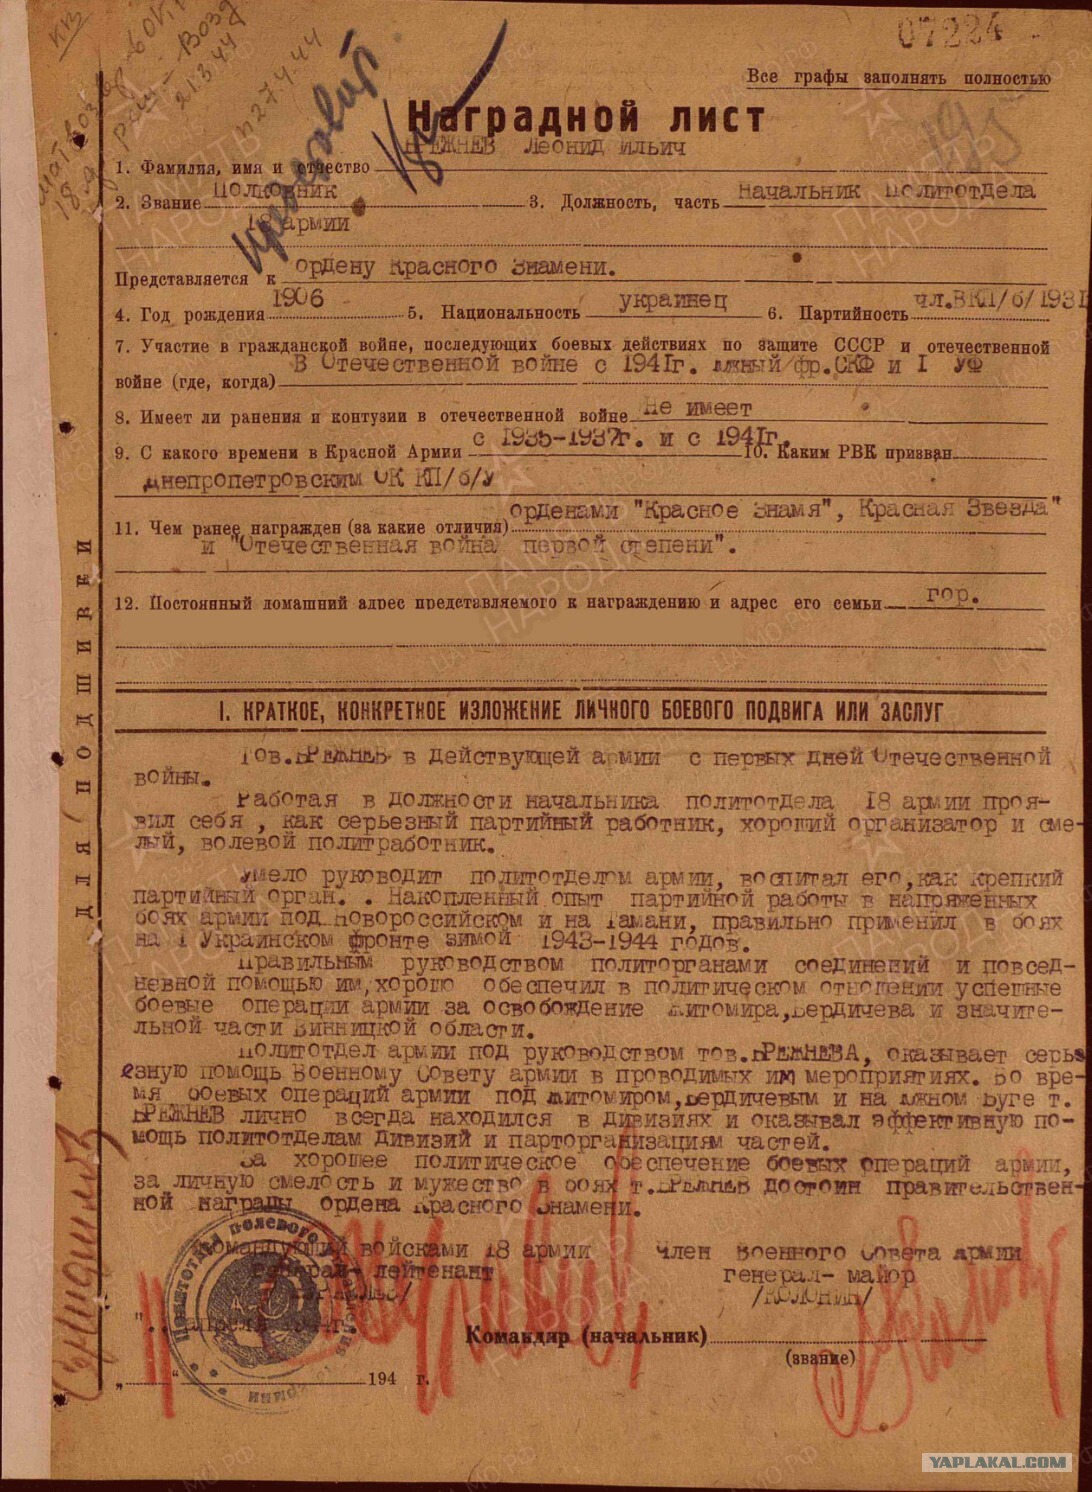 07224
Все графы заполнять полностью
Наградной лист
1. Фамилия, имя и отчество БРЕЖНЕВ Леонид Ильич
2. Звание Полковник 3. Должность, часть Начальник Политотдела
18 армии
Представляется к ордену Красного Знамени.
4. Год рождения 1906 5. Национальность украинец 6. Партийность чл.ВКП/б/1931
7. Участие в гражданской войне, последующих боевых действиях по защите СССР и отечественной
войне (где, когда) В Отечественной войне с 1941г. Южный фр.СКФ и I УФ
8. Имеет ли ранения и контузии в отечественной войне Не имеет
9. С какого времени в Красной Армии с 1935-1937г. и с 1941г. 10. Каким РВК призван
Днепропетровским ОК КП/б/У
11. Чем ранее награжден (за какие отличия) орденами "Красное Знамя", Красная Звезда"
и "Отечественная война первой степени".
12. Постоянный домашний адрес представляемого к награждению и адрес его семьи гор.
ДЛЯ ПОДШИВКИ
I. КРАТКОЕ, КОНКРЕТНОЕ ИЗЛОЖЕНИЕ ЛИЧНОГО БОЕВОГО ПОДВИГА ИЛИ ЗАСЛУГ
Тов.БРЕЖНЕВ в Действующей армии с первых дней Отечественной
войны.
Работая в должности начальника политотдела 18 армии проя-
вил себя, как серьезный партийный работник, хороший организатор и сме-
лый, волевой политработник.
Умело руководит политотделом армии, воспитал его,как крепкий
партийный орган. . Накопленный опыт партийной работы в напряженных
боях армии под Новороссийском и на Тамани, правильно применил в боях
на I Украинском фронте зимой 1943-1944 годов.
Правильным руководством политорганами соединений и повсед-
невной помощью им,хорошо обеспечил в политическом отношении успешные
боевые операции армии за освобождение Житомира,Бердичева и значите-
льной части Винницкой области.
Политотдел армии под руководством тов.БРЕЖНЕВА, оказывает серь
езную помощь Военному Совету армии в проводимых им мероприятиях. Во вре-
мя боевых операций армии под Житомиром,Бердичевым и на Южном Буге т.
БРЕЖНЕВ лично всегда находился в дивизиях и оказывал эффективную по-
мощь политотделам дивизий и парторганизациям частей.
За хорошее политическое обеспечение боевых операций армии,
за личную смелость и мужество в боях т.БРЕЖНЕВ достоин правительствен-
ной награды ордена Красного Знамени.
Командующий войсками 18 армии Член Военного Совета армии
генерал-лейтенант генерал-майор
/ЖУРАВЛЕВ/ /КОЛОНИН/
апреля 1944г.
Командир (начальник)
(звание)
" " 194 г.
YAPLAKAL.COM